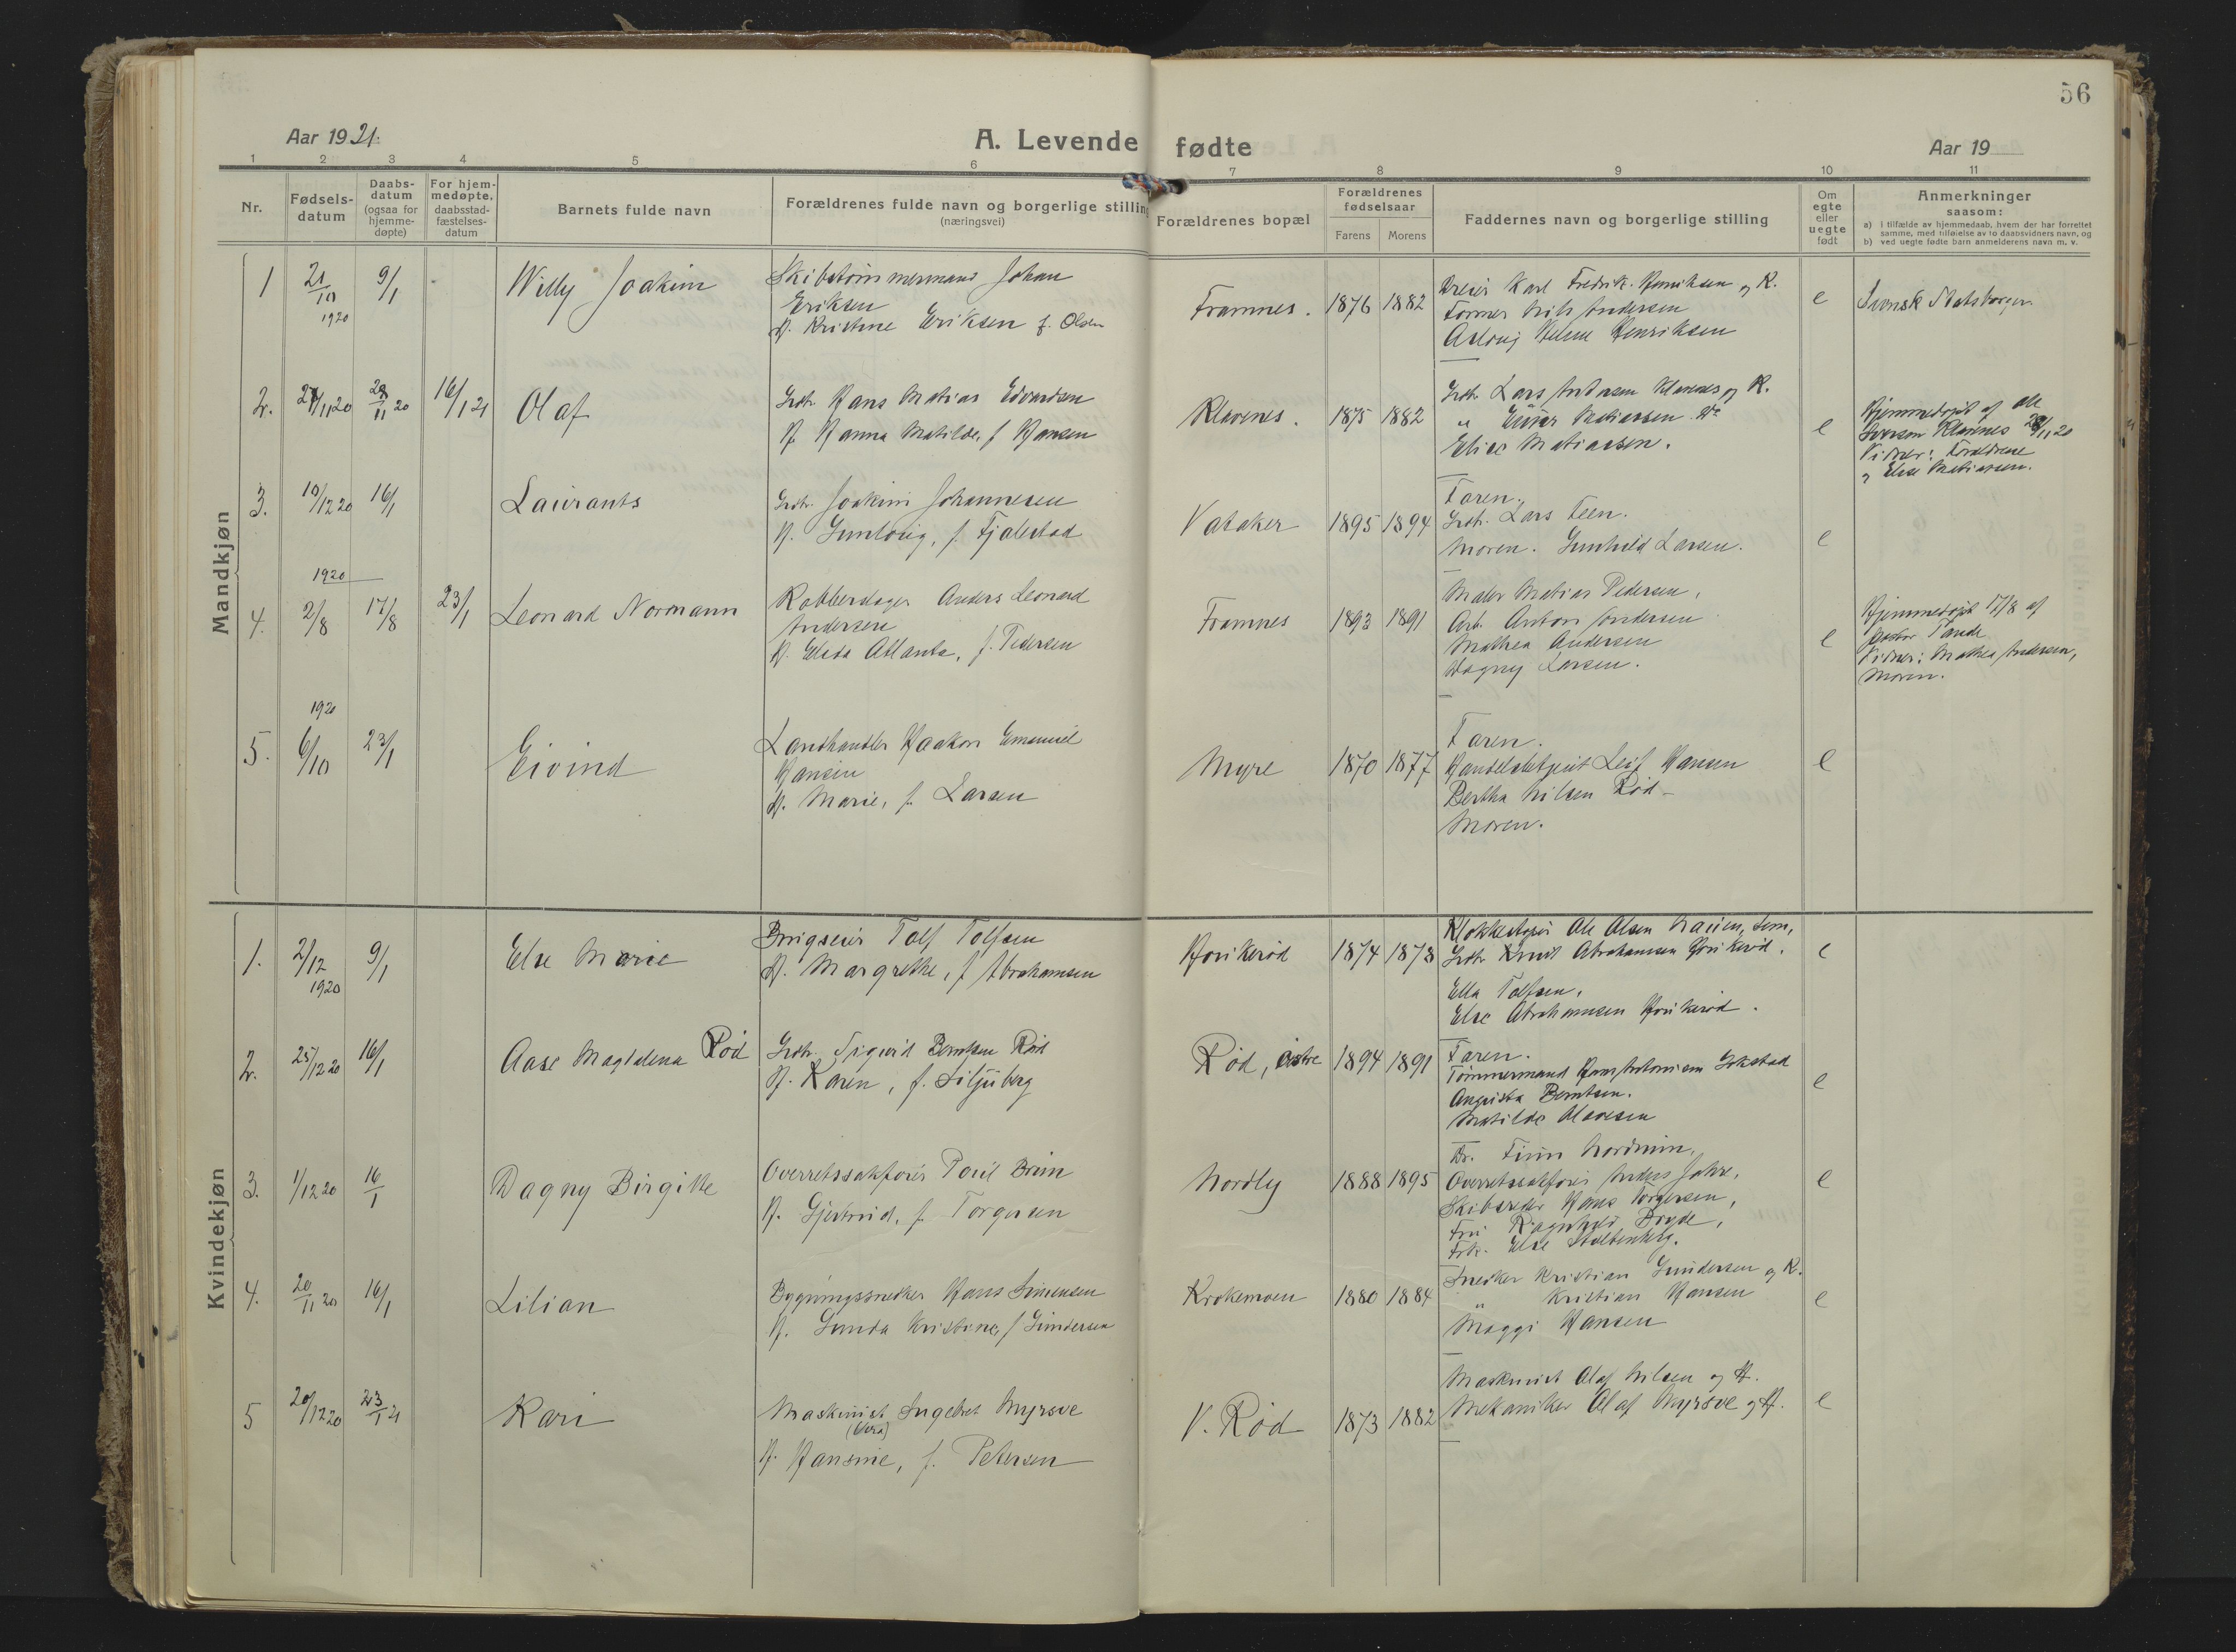 56
Aar 1921.
A. Levende fødte
Aar 19
1 2 3 4 5 6 7 8 9 10 11
Nr.
Fødsels-
datum
Daabs-
datum
(ogsaa for
hjemme-
døpte)
For hjem-
medøpte,
daabsstad-
fæstelses-
datum
Barnets fulde navn
Forældrenes fulde navn og borgerlige stilling
(næringsvei)
Forældrenes bopæl
Forældrenes
fødselsaar
Farens Morens
Faddernes navn og borgerlige stilling
Om
egte
eller
uegte
født
Anmerkninger
saasom:
a) i tilfælde av hjemmedaab, hvem der har forrettet
samme, med tilføielse av to daabsvidners navn, og
b) ved uegte fødte barn anmelderens navn m. v.
Mandkjøn
1 21/10 1920 9/1 Willy Joakim
Skibstømmermand Johan
Eriksen
H. Kristine Eriksen f. Olsen
Framnes. 1876 1882
Dreier Karl Fredrik Henriksen og K.
Former Nils Andersen
Aslaug Helene Henriksen
e
Svensk Statsborger.
2. 27/11 20 28/11 20 16/1 21 Olaf
Grdbr. Hans Matias Edvardsen
H. Hanna Matilde, f. Hansen
Klavenes. 1875 1882
Grdbr. Lars Andersen Klavenes og K.
" Einar Matiassen
Elise Matiassen.
e
Hjemmedøpt af Ole
Iverson Klavenes 28/11 20
Vidner: Forældrene
og Elise Matiassen.
3. 10/12 20 16/1 Laurants
Grdbr. Joakim Johannesen
H. Gunlaug, f. Fjalestad
Vataker 1895 1894
Faren.
Grdbr. Lars Teen.
Moren. Gunhild Larsen.
e
4. 1920 2/8 17/8 23/1 Leonard Normann
Kobberslager Anders Leonard
Andersen
H. Elida Atlanta, f. Pedersen
Framnes 1893 1891
Maler Matias Pedersen,
Arb. Anton Andersen
Mathea Andersen
Dagny Larsen.
e
Hjemmedøpt 17/8 af
pastor Tande
Vidner: Mathea Andersen,
Moren.
5. 1920 6/10 23/1 Eivind
Landhandler Haakon Emanuel
Hansen
H. Marie, f. Larsen
Myre 1870 1877
Faren.
Handelsbetjent Leif Hansen
Bertha Nilsen Rød
Moren.
e
Kvindekjøn
1. 21/12 1920 9/1 Else Marie
Brugseier Tolf Tolfsen
H. Margrethe, f. Abrahamsen
Haukerød 1874 1873
Klokkestøper Ole Olsen Nauen, Sem,
Grdbr. Knut Abrahamsen Haukerød.
Ella Tolfsen,
Else Abrahamsen Haukerød.
e
2. 25/12 20 16/1 Aase Magdalena Rød
Grdbr. Sigurd Berntsen Rød
H. Karen, f. Liljuberg
Rød, østre 1894 1891
Faren.
Tømmermand Hans Antonisen Gokstad
Augusta Berntsen.
Matilde Olavesen
e
3. 1/12 20 16/1 Dagny Birgitte
Overretssakfører Poul Bruun
H. Gjertrud, f. Torgersen
Nordly 1888 1895
Dr. Finn Nordmin,
Overretssakfører Anders Jahre,
Skibsreder Hans Torgersen,
Fru Ragnhild Bryde,
Frk. Else Stoltenberg.
e
4. 20/11 20 16/1 Lilian
Bygningssnedker Hans Simensen
H. Gunda Kristine, f. Gundersen
Krokemoen 1880 1884
Snedker Kristian Gundersen og K.
" Kristian Hansen
Maggi Hansen
e
5 20/12 20 23/1 21 Kari
Maskinist Ingebret Myrsve
H. Hansine, f. Petersen
V. Rød 1873 1882
Maskinist Olaf Nilsen og H.
Mekaniker Olaf Myrsve og H.
e